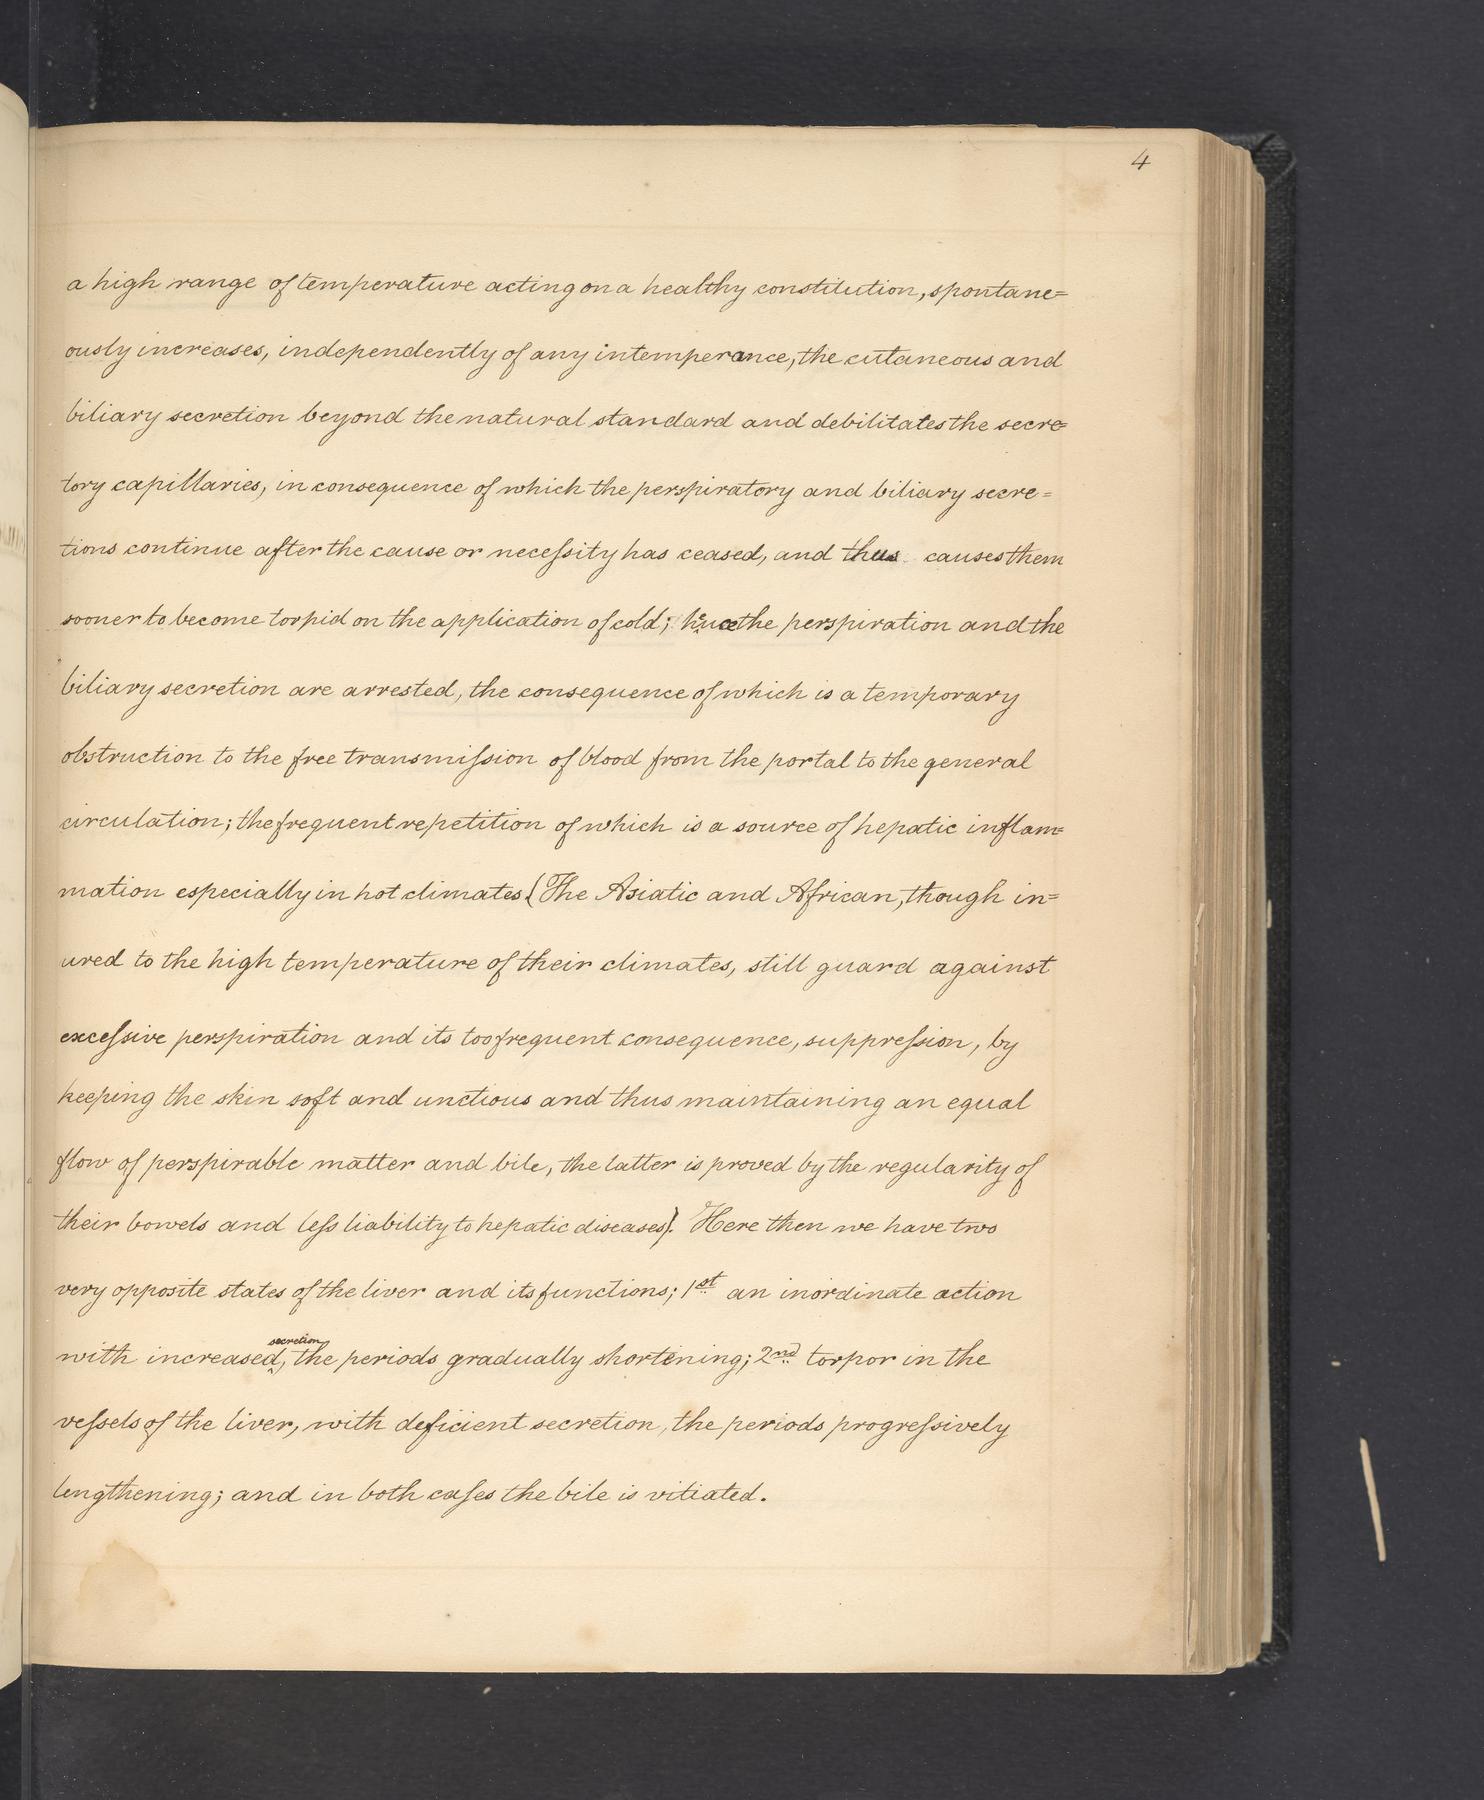 4
a high range of temperature acting on a healthy constitution, spontane=
ously increases, independently of any intemperance, the cutaneous and
biliary secretion beyond the natural standard and debilitates the secre=
tory capillaries, in consequence of which the perspiratory and biliary secre=
tions continue after the cause or neceſsity has ceased, and thus causes them
sooner to become torpid on the application of cold; hence the perspiration and the
biliary secretion are arrested, the consequence of which is a temporary
obstruction to the free transmiſsion of blood from the portal to the general
circulation; the frequent repetition of which is a source of hepatic inflam=
mation especially in hot climates (The Asiatic and African, though in=
ured to the high temperature of their climates, still guard against
exceſsive perspiration and its too frequent consequence, suppreſsion, by
keeping the skin soft and unctious and thus maintaining an equal
flow of perspirable matter and bile, the latter is proved by the regularity of
their bowels and leſs liability to hepatic diseases). Here then we have two
very opposite states of the liver and its functions; 1st an inordinate action
secretion
with increased, the periods gradually shortening; 2nd torpor in the
veſsels of the liver, with deficient secretion, the periods progreſsively
lengthening; and in both caſes the bile is vitiated.